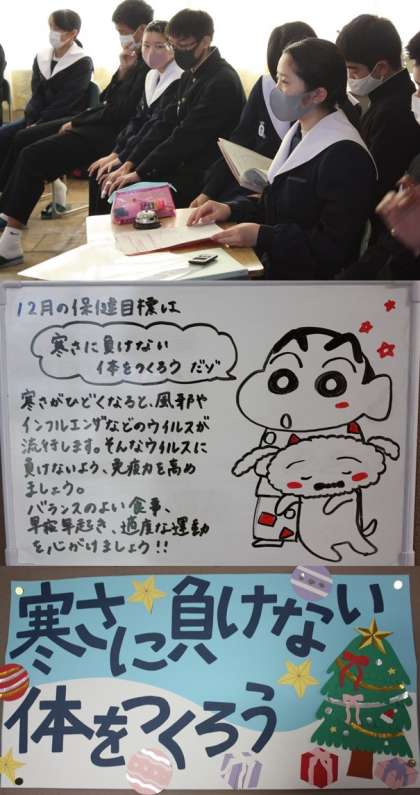 12月の保健目標は
寒さに負けない
体をつくろう だゾ
寒さがひどくなると、風邪や
インフルエンザなどのウイルスが
流行します。そんなウイルスに
負けないよう、免疫力を高め
ましょう。
バランスのよい食事、
早寝早起き、適度な運動
を心がけましょう!!
寒さに負けない
体をつくろう